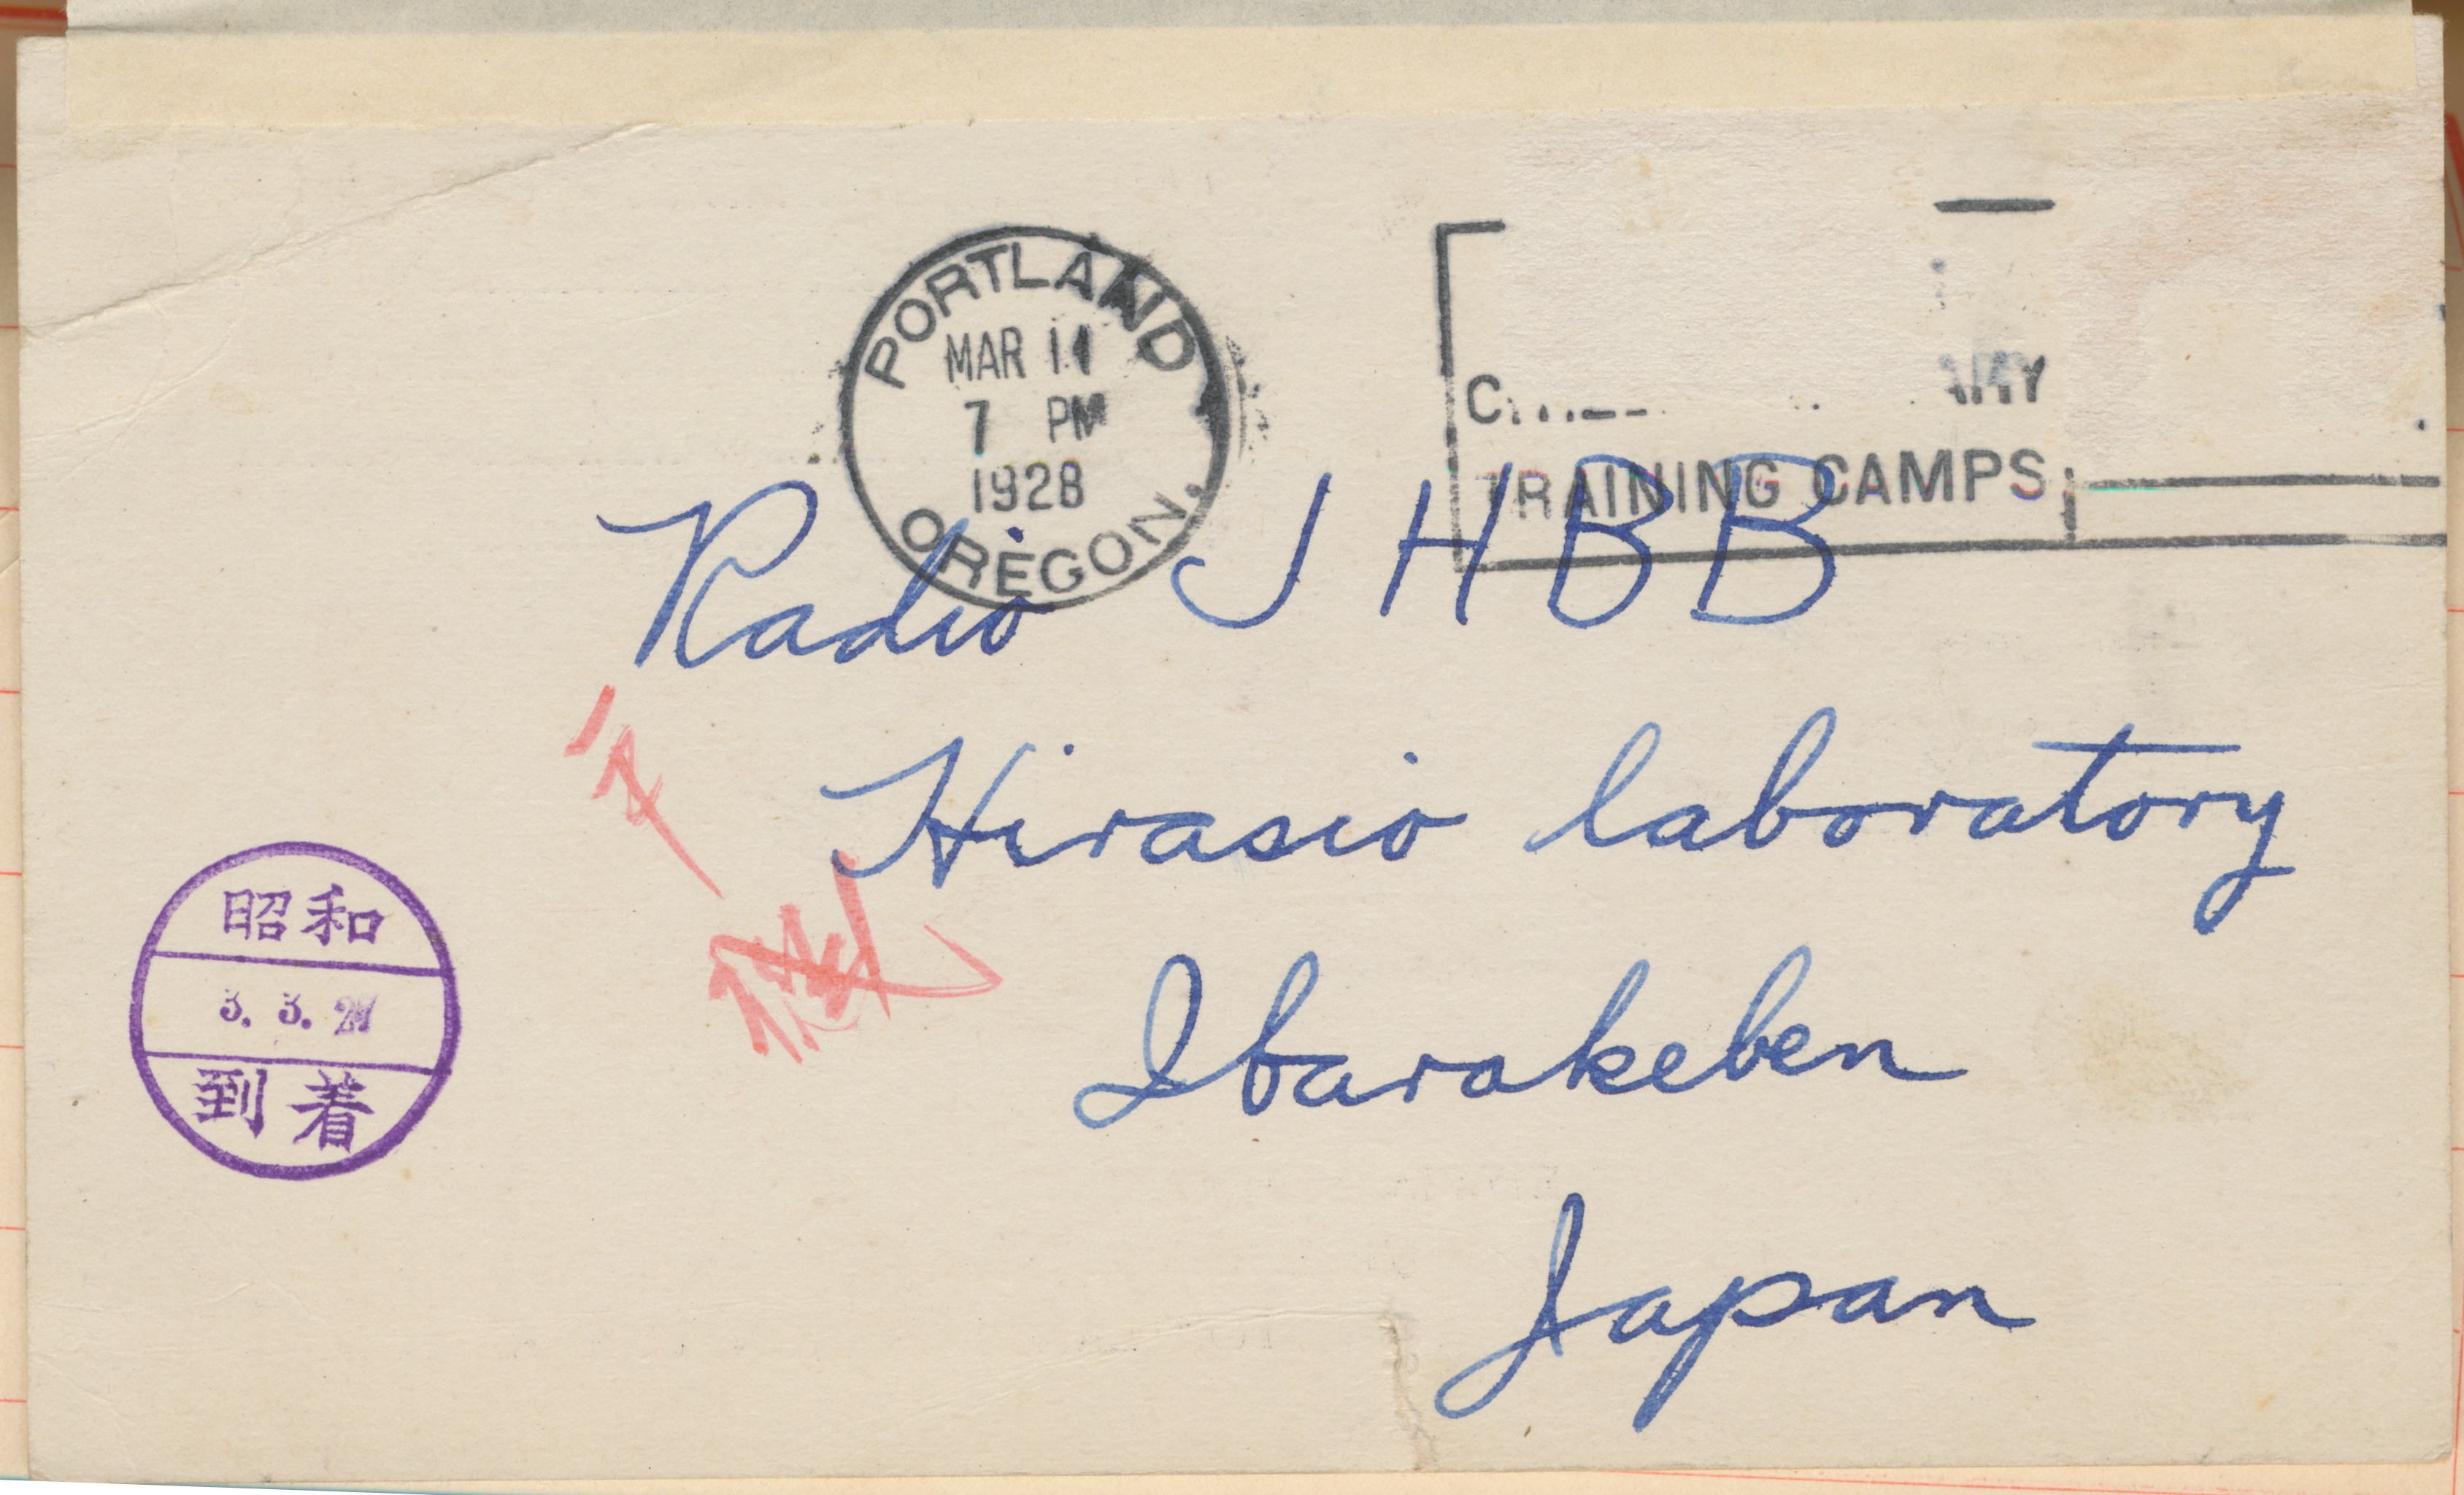 PORTLAND
MAR 11
7 PM
1928
OREGON.
TRAINING CAMPS
Radio JHBB
Hirasio laboratory
Ibarakeben
Japan
昭和
3. 3. 27
到着